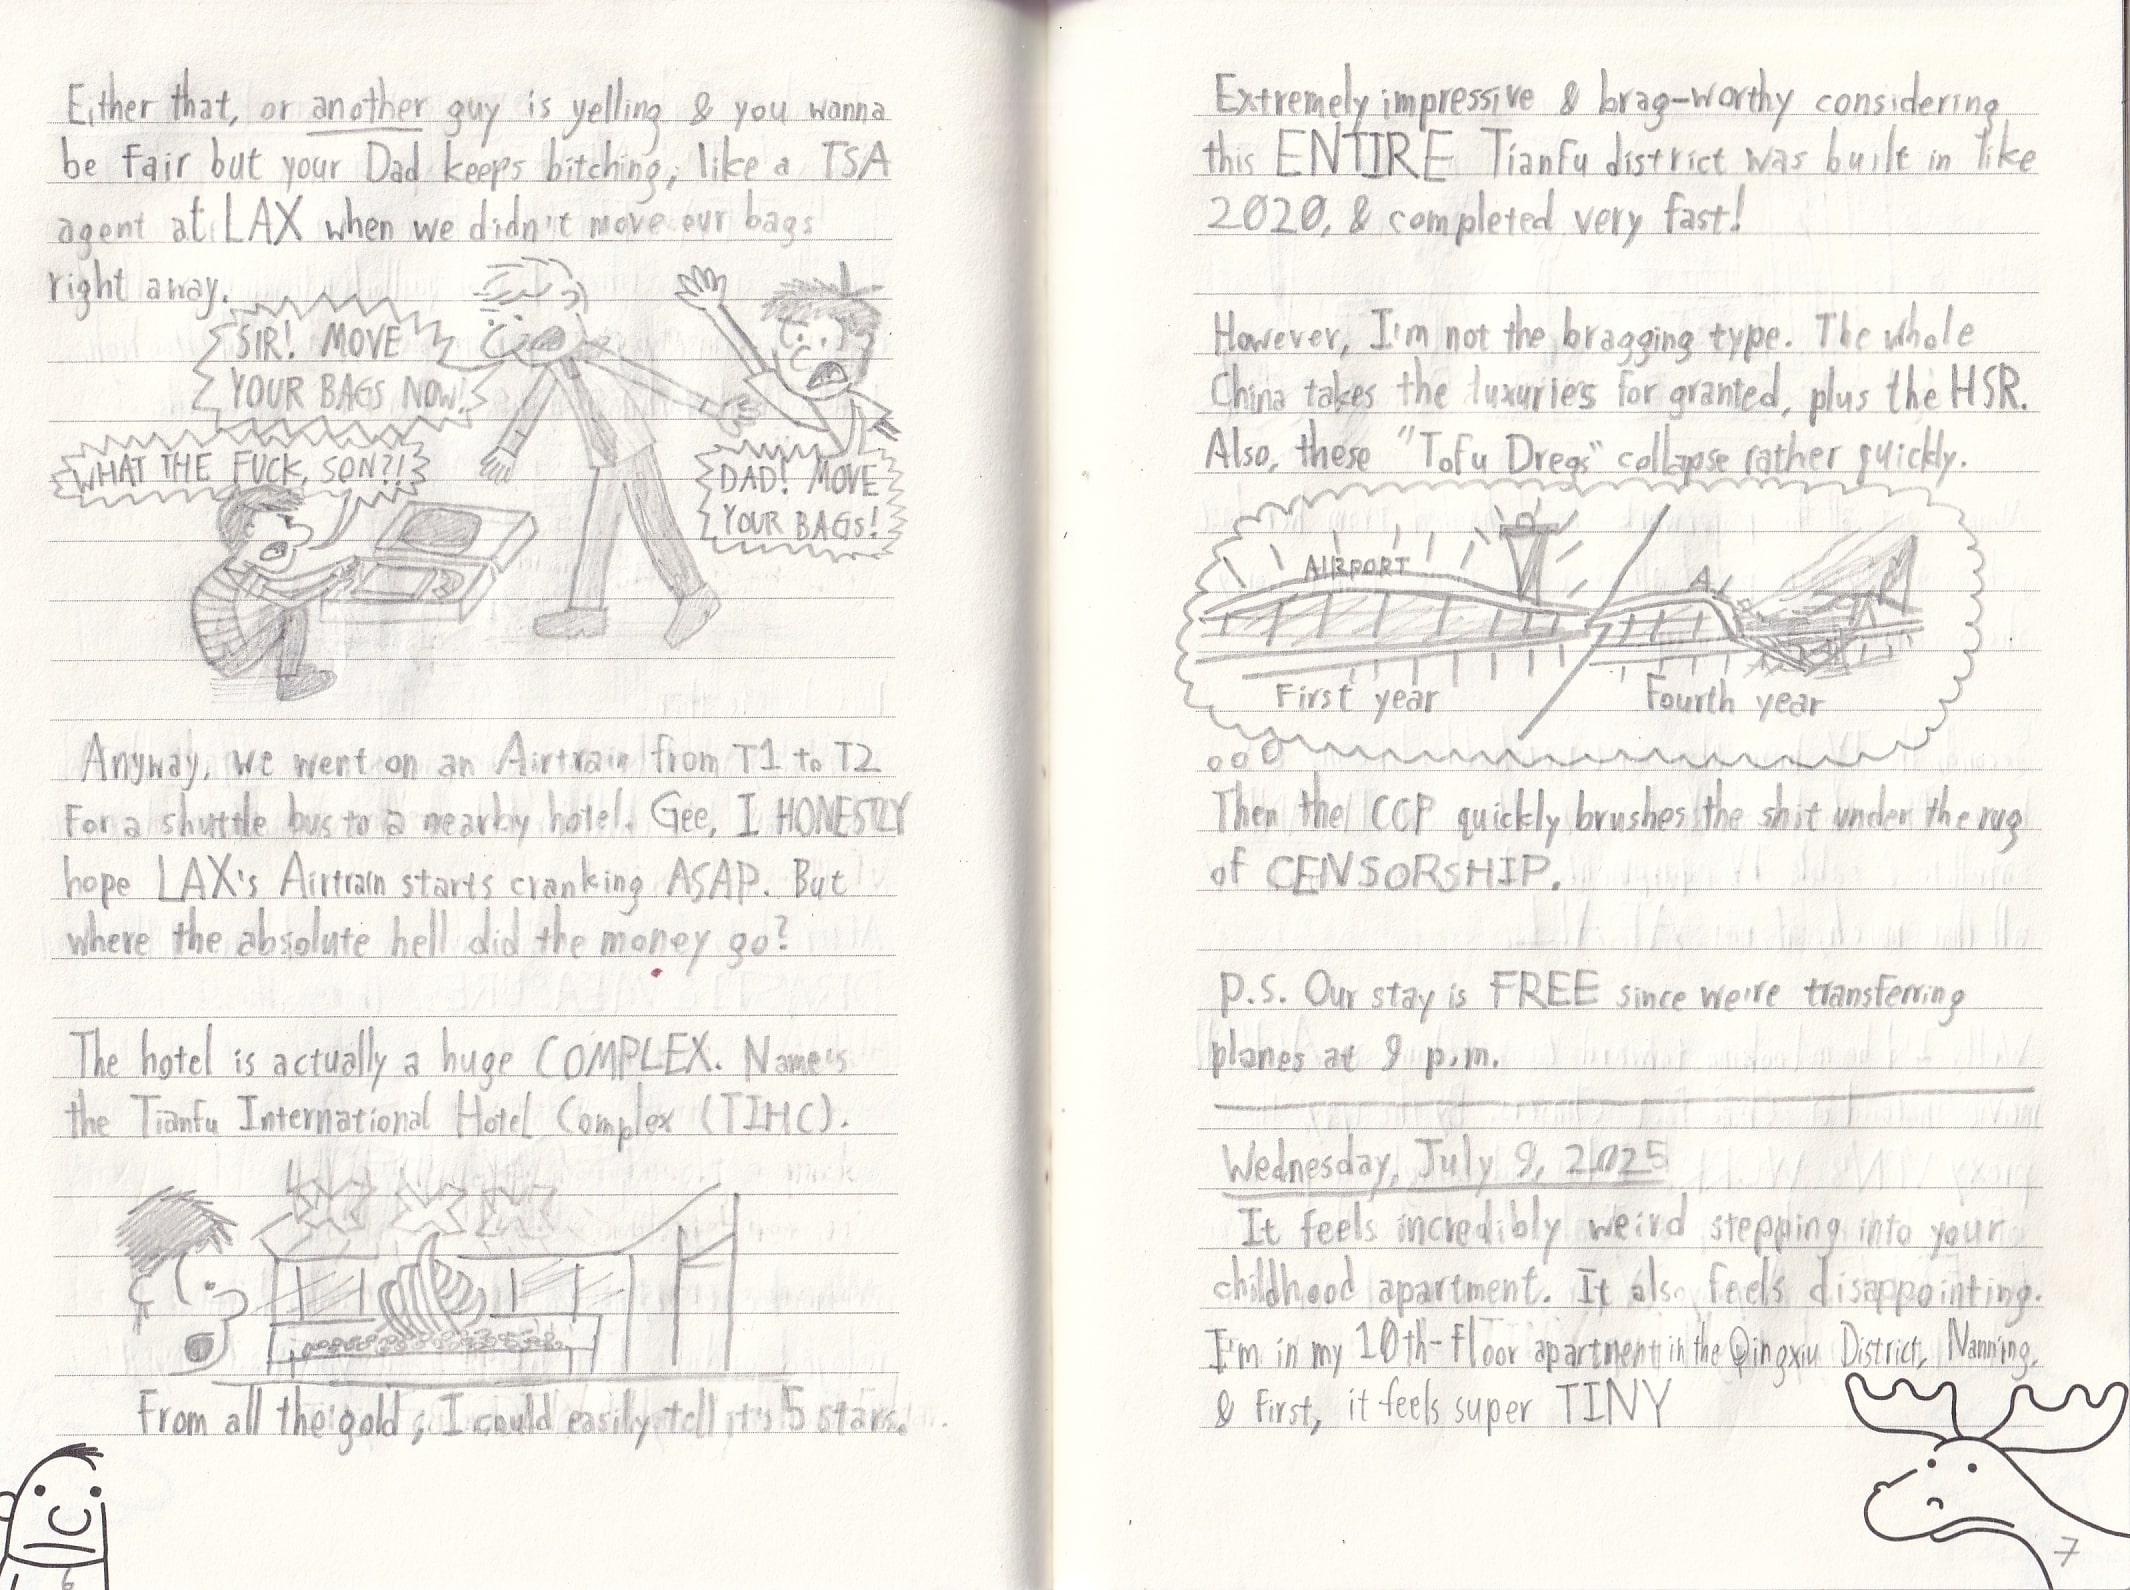 Either that, or another guy is yelling & you wanna
be fair but your Dad keeps bitching, like a TSA
agent at LAX when we didn't move our bags
right away.
SIR! MOVE
YOUR BAGS NOW!
WHAT THE FUCK, SON?!?
DAD! MOVE
YOUR BAGS!
Anyway, we went on an Airtrain from T1 to T2
for a shuttle bus to a nearby hotel. Gee, I HONESTLY
hope LAX's Airtrain starts cranking ASAP. But
where the absolute hell did the money go?
The hotel is actually a huge COMPLEX. Name's
the Tianfu International Hotel Complex (TIHC).
From all the gold, I could easily tell it's 5 stars.
6
Extremely impressive & brag-worthy considering
this ENTIRE Tianfu district was built in like
2020, & completed very fast!
However, I'm not the bragging type. The whole
China takes the luxuries for granted, plus the HSR.
Also, these "Tofu Dregs" collapse rather quickly.
AIRPORT
A
First year
Fourth year
Then the CCP quickly brushes the shit under the rug
of CENSORSHIP.
P.S. Our stay is FREE since we're transferring
planes at 9 p.m.
Wednesday, July 9, 2025
It feels incredibly weird stepping into your
childhood apartment. It also feels disappointing.
I'm in my 10th-floor apartment in the Qingxiu District, Nanning,
& first, it feels super TINY
7